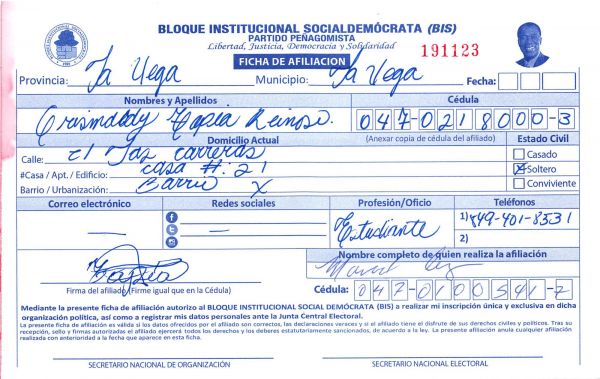 BLOQUE INSTITUCIONAL SOCIALDEMÓCRATA (BIS)
PARTIDO PEÑAGOMISTA
Libertad, Justicia, Democracia y Solidaridad
FICHA DE AFILIACION
191123
Provincia: La Vega Municipio: La Vega Fecha:
Nombres y Apellidos Cédula
Tapia Reinoso. 047-0218000-3
Domicilio Actual (Anexar copia de cédula del afiliado) Estado Civil
Calle: Las carreras
#Casa / Apt. / Edificio: casa #: 21
Barrio / Urbanización: Barrio X
Casado
X Soltero
Conviviente
Correo electrónico Redes sociales Profesión/Oficio Teléfonos
— — Estudiante 1) 849-401-8531
2)
Nombre completo de quien realiza la afiliación
Firma del afiliado (Firme igual que en la Cédula)
Cédula: 047-0100541-2
Mediante la presente ficha de afiliación autorizo al BLOQUE INSTITUCIONAL SOCIAL DEMÓCRATA (BIS) a realizar mi inscripción única y exclusiva en dicha
organización política, así como a registrar mis datos personales ante la Junta Central Electoral.
La presente ficha de afiliación es válida si los datos ofrecidos por el afiliado son correctos, las declaraciones veraces y si el afiliado tiene el disfrute de sus derechos civiles y políticos. Tras su
recepción, sello y firmas autorizadas el afiliado ejercerá todos los derechos y los deberes estatutariamente sancionados, de acuerdo a la ley. La presente afiliación anula cualquier afiliación
realizada con anterioridad a la fecha que aparece en esta ficha.
SECRETARIO NACIONAL DE ORGANIZACIÓN SECRETARIO NACIONAL ELECTORAL